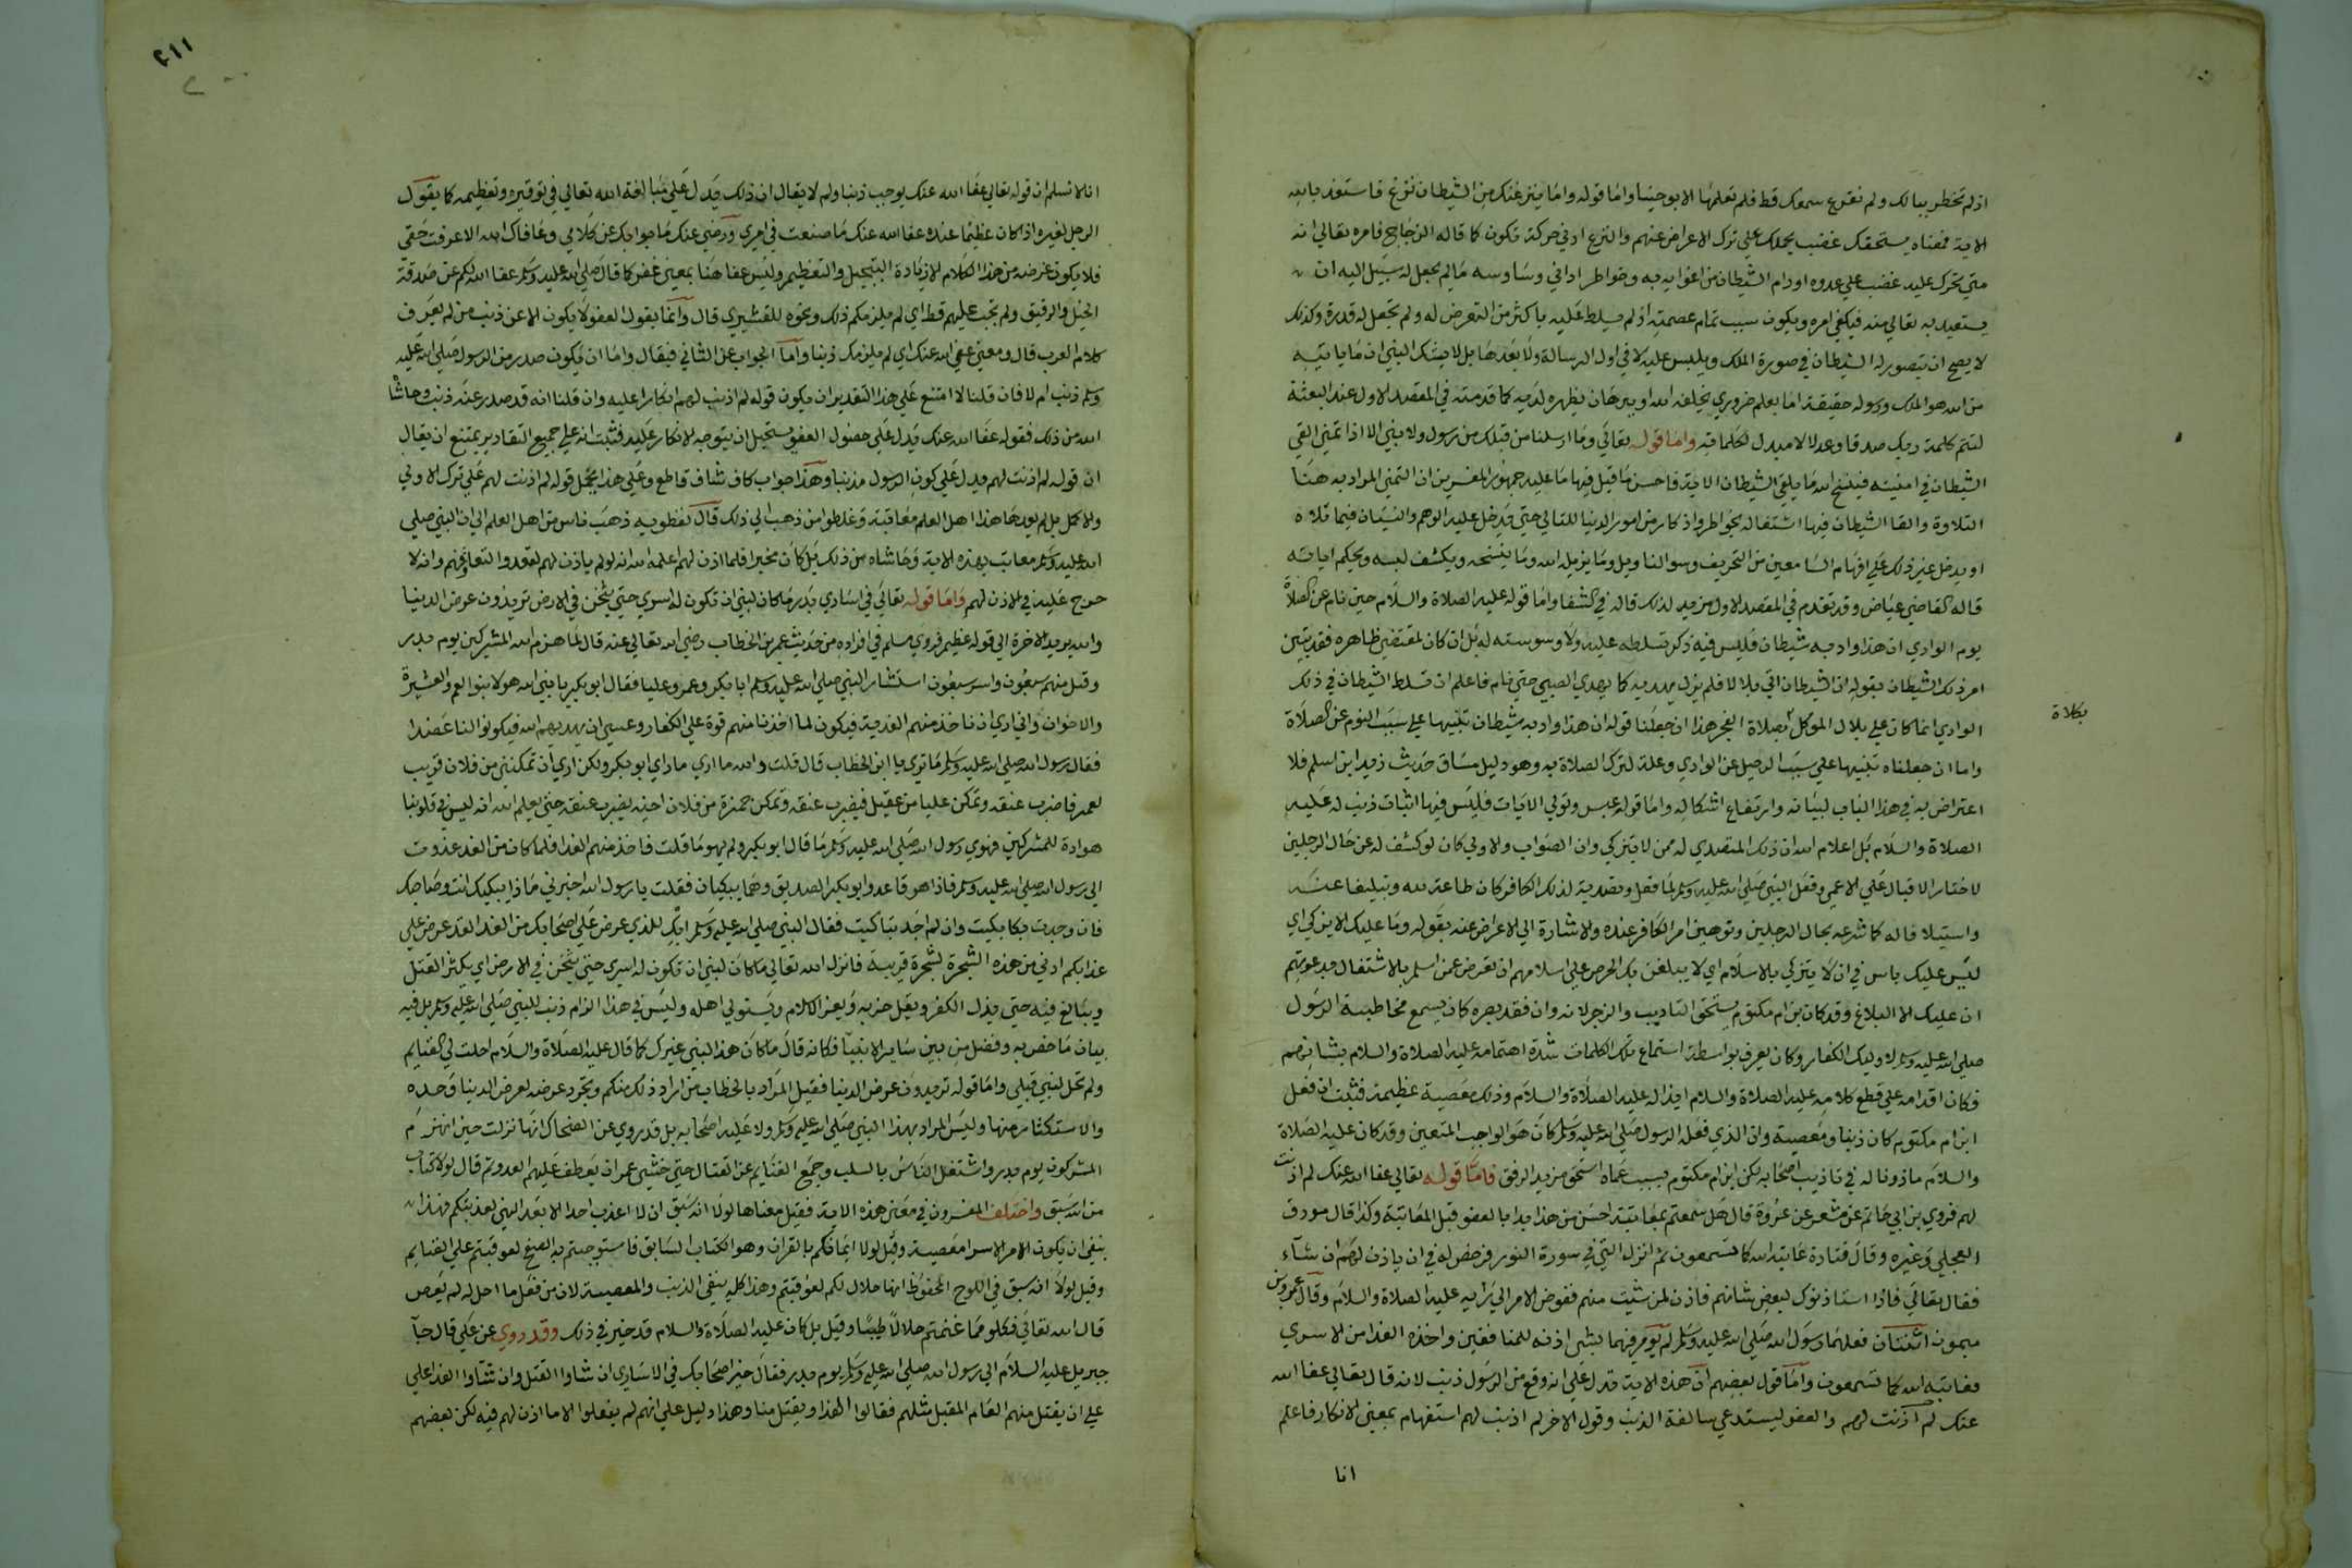 اذ لم تخطر ببالك ولم نقرع سمعك قط فلم تعلمها الا بوحينا واما قوله واما ينزغنك من الشيطان نزغ فاستعذ بالله
الاية فمعناه يستحفنك غضب يحملك على ترك الاعراض عنهم والنزغ ادنى حركة تكون كما قاله الزجاج فامره تعالى انه
متي تحرك عليه غضب على عدوه او رام الشيطان من اغوايه به وخواطر اداني وساوسه مالم يجعل له سبيل اليه ان
يستعيذ به تعالى منه فيكفي امره ويكون سبب تمام عصمته اذ لم يسلط عليه باكثر من التعرض له ولم يجعل له قدرة وكذلك
لا يصح ان يتصور له الشيطان في صورة الملك ويلبس عليه لا في اول الرسالة ولا بعدها بل لا يشك النبي ان ما ياتيه
من الله هو الملك ورسوله حقيقة اما بعلم ضروري يخلقه الله او ببرهان يظهره لديه كما قدمته في المقصد الاول عند البعثة
لتتم كلمة ربك صدقا وعدلا لا مبدل لكلماته واما قوله تعالى وما ارسلنا من قبلك من رسول ولا نبي الا اذا تمنى القي
الشيطان في امنيته فينسخ الله ما يلقي الشيطان الاية فاحسن ما قيل فيها ما عليه جمهور المفسرين ان التمني المراد به هنا
التلاوة والقا الشيطان فيها اشتغاله بخواطر واذكار من امور الدنيا للتالي حتي يدخل عليه الوهم والنسيان فيما تلاه
او يدخل غير ذلك على افهام السامعين من التحريف وسو التاويل وما يزيله الله وما ينسخه ويكشف لبسه ويحكم اياته
قاله القاضي عياض وقد تقدم في المقصد الاول مزيد لذلك قاله في الشفا واما قوله عليه الصلاة والسلام حين نام عن الصلاة
يوم الوادي ان هذا واد به شيطان فليس فيه ذكر تسلطه عليه ولا وسوسته له بل ان كان بمقتضى ظاهره فقد بين
امر ذلك الشيطان بقوله ان الشيطان اتى بلالا فلم يزل يهديه كما يهدي الصبي حتي نام فاعلم ان تسلط الشيطان في ذلك
الوادي انما كان على بلال الموكل بصلاة الفجر هذا ان جعلنا قوله ان هذا واد به شيطان تنبيها على سبب النوم عن الصلاة
بكلاة
واما ان جعلناه تنبيها على سبب الرحيل عن الوادي وعلة لترك الصلاة به وهو دليل مساق حديث زيد ابن اسلم فلا
اعتراض به في هذا الباب لبيانه وارتفاع اشكاله واما قوله عبس وتولى الايات فليس فيها اثبات ذنب له عليه
الصلاة والسلام بل اعلام الله ان ذلك المتصدي له ممن لا يتزكي وان الصواب والاولى كان لو كشف له عن حال الرجلين
لاختار الاقبال على الاعمى وفعل النبي صلى الله عليه وسلم لما فعل وتصديه لذلك الكافر كان طاعة لله وتبليغا عنه
واستيلافا له كما شرعه بحال الرجلين وتوهين امر الكافر عنده والاشارة الى الاعراض عنه بقوله وما عليك الا يزكي اي
ليس عليك باس في ان لا يتزكي بالاسلام اي لا يبلغن بك الحرص على اسلامهم ان تعرض عمن اسلم بالاشتغال بدعوتهم
ان عليك الا البلاغ وقد كان بن ام مكتوم يستحق التاديب والزجر لانه وان فقد بصره كان يسمع مخاطبة الرسول
صلى الله عليه وسلم لاوليك الكفار وكان يعرف بواسطة استماع تلك الكلمات شدة اهتمامه عليه الصلاة والسلام بشانهم
فكان اقدامه على قطع كلامه عليه الصلاة والسلام ايذا له عليه الصلاة والسلام وذلك معصية عظيمة فثبت ان فعل
ابن ام مكتوم كان ذنبا ومعصية وان الذي فعله الرسول صلى الله عليه وسلم كان هو الواجب المتعين وقد كان عليه الصلاة
والسلام ماذونا له في تاديب اصحابه لكن ابن ام مكتوم بسبب عماه استحق مزيد الرفق فاما قوله تعالى عفا الله عنك لم اذنت
لهم فروي بن ابي حاتم عن مسعر عن عروة قال هل سمعتم بمعاتبة احسن من هذا بدا بالعفو قبل المعاتبة وكذا قال مورق
العجلي وغيره وقال قتادة عاتبه الله كما تسمعون ثم انزل التي في سورة النور فرخص له في ان ياذن لهم ان شآء
فقال تعالى فاذا استاذنوك لبعض شانهم فاذن لمن شيت منهم ففوض الامر الى رايه عليه الصلاة والسلام وقال عمرو بن
ميمون اثنتان فعلهما رسول الله صلى الله عليه وسلم لم يومر فيهما بشى اذنه للمنافقين واخذه الفدا من الاسري
فعاتبه الله كما تسمعون واما قول بعضهم ان هذه الاية تدل على انه وقع من الرسول ذنب لانه قال تعالى عفا الله
عنك لم اذنت لهم والعفو يستدعي سالفة الذنب وقول الاخر لم اذنت لهم استفهام بمعنى الانكار فاعلم
انا
٢١١
انا لا نسلم ان قوله تعالى عفا الله عنك يوجب ذنبا ولم لا يقال ان ذلك يدل على مبالغة الله تعالى في توقيره وتعظيمه كما يقول
الرجل لغيره اذا كان عظيما عنده عفا الله عنك ما صنعت في امري ورضي عنك ما جوابك عن كلامي وعافاك الله الا عرفت حقي
فلا يكون غرضه من هذا الكلام الا زيادة التبجيل والتعظيم وليس عفا هنا بمعنى غفر كما قال صلى الله عليه وسلم عفا الله لكم عن صدقة
الخيل والرقيق ولم تجب عليهم قط اي لم يلزمكم ذلك ونحوه للقشيري قال وانما يقول العفو لا يكون الا عن ذنب من لم يعرف
كلام العرب قال ومعنى عفى الله عنك اي لم يلزمك ذنبا واما الجواب عن الثاني فيقال واما ان يكون صدر من الرسول صلى الله عليه
وسلم ذنب ام لا فان قلنا لا امتنع على هذا التقدير ان يكون قوله لم اذنت لهم انكارا عليه وان قلنا انه قد صدر عنه ذنب وحاشا
الله من ذلك فقوله عفا الله عنك يدل على حصول العفو يستحيل ان يتوجه الانكار عليه فثبت انه على جميع التقادير يمتنع ان يقال
ان قوله لم اذنت لهم يدل على كون الرسول مذنبا وهذا جواب كاف شاف قاطع وعلى هذا يحمل قوله لم اذنت لهم على ترك الاولى
والاكمل بل لم يعدها هذا اهل العلم معاقبة وغلطوا من ذهب الى ذلك قال نفطويه ذهب ناس من اهل العلم الى ان النبي صلى
الله عليه وسلم معاتب بهذه الاية وحاشاه من ذلك بل كان مخيرا فلما اذن لهم اعلمه الله انه لو لم ياذن لهم لقعدوا لنفاقهم وانه لا
حرج عليه في الاذن لهم واما قوله تعالى في اساري بدر ما كان لنبي ان تكون له اسرى حتي يثخن في الارض تريدون عرض الدنيا
والله يريد الاخرة الى قوله عظيم فروي مسلم في افراده من حديث عمر بن الخطاب رضي الله تعالى عنه قال لما هزم الله المشركين يوم بدر
وقتل منهم سبعون واسر سبعون استشار النبي صلى الله عليه وسلم ابا بكر وعمر وعليا فقال ابو بكر يا نبي الله هولا بنوا العم والعشيرة
والاخوان واني اري ان ناخذ منهم الفدية فيكون لما اخذنا منهم قوة على الكفار وعسى ان يهديهم الله فيكونوا لنا عضدا
فقال رسول الله صلى الله عليه وسلم ما تري يا ابن الخطاب قال قلت والله ما اري ما راي ابو بكر ولكن اري ان تمكنني من فلان قريب
لعمر فاضرب عنقه وتمكن عليا من عقيل فيضرب عنقه وتمكن حمزة من فلان اخيه يضرب عنقه حتي يعلم الله انه ليس في قلوبنا
هوادة للمشركين فهوي رسول الله صلى الله عليه وسلم ما قال ابو بكر ولم يهو ما قلت فاخذ منهم الفدا فلما كان من الغد غدوت
الى رسول الله صلى الله عليه وسلم فاذا هو قاعد وابو بكر الصديق وهما يبكيان فقلت يا رسول الله اخبرني ماذا يبكيك انت وصاحبك
فان وجدت بكا بكيت وان لم اجد تباكيت فقال النبي صلى الله عليه وسلم ابك للذي عرض علي اصحابك من الفدا لقد عرض علي
عذابكم ادني من هذه الشجرة لشجرة قريبة فانزل الله تعالى ما كان لنبي ان تكون له اسري حتي يثخن في الارض اي يكثر القتل
ويبالغ فيه حتي يذل الكفر ويقل حزبه ويعز الاسلام ويستولي اهله وليس في هذا الزام ذنب للنبي صلى الله عليه وسلم بل فيه
بيان ما خص به وفضل من بين ساير الانبيآ فكانه قال ما كان هذا لنبي غيرك كما قال عليه الصلاة والسلام احلت لي الغنايم
ولم تحل لنبي قبلي واما قوله تريدون عرض الدنيا فقيل المراد بالخطاب من اراد ذلك منكم وتجرد غرضه لعرض الدنيا وحده
والاستكثار منها وليس المراد بهذا النبي صلى الله عليه وسلم ولا علية اصحابه بل قد روي عن الضحاك انها نزلت حين انهزم
المشركون يوم بدر واشتغل الناس بالسلب وجمع الغنايم عن القتال حتي خشي عمر ان يعطف عليهم العدو ثم قال لولا كتاب
من الله سبق واختلف المفسرون في معنى هذه الاية فقيل معناها لولا انه سبق ان لا اعذب احدا الا بعد النهي لعذبتكم فهذا
ينفي ان يكون الامر الاسرا معصية وقيل لولا ايمانكم بالقران وهو الكتاب السابق فاستوجبتم به الصفح لعوقبتم على الغنايم
وقيل لولا انه سبق في اللوح المحفوظ انها حلال لكم لعوقبتم وهذا كله ينفي الذنب والمعصية لان من فعل ما احل له لم يعص
قال الله تعالى فكلوا مما غنمتم حلالا طيبا وقيل بل كان عليه الصلاة والسلام قد خير في ذلك وقد روي عن علي قال جآ
جبريل عليه السلام الى رسول الله صلى الله عليه وسلم يوم بدر فقال خير اصحابك في الاساري ان شاوا القتل وان شاوا الفدا على
على ان يقتل منهم العام المقبل مثلهم فقالوا الفدا ويقتل منا وهذا دليل على انهم لم يفعلوا الا ما اذن لهم فيه لكن بعضهم